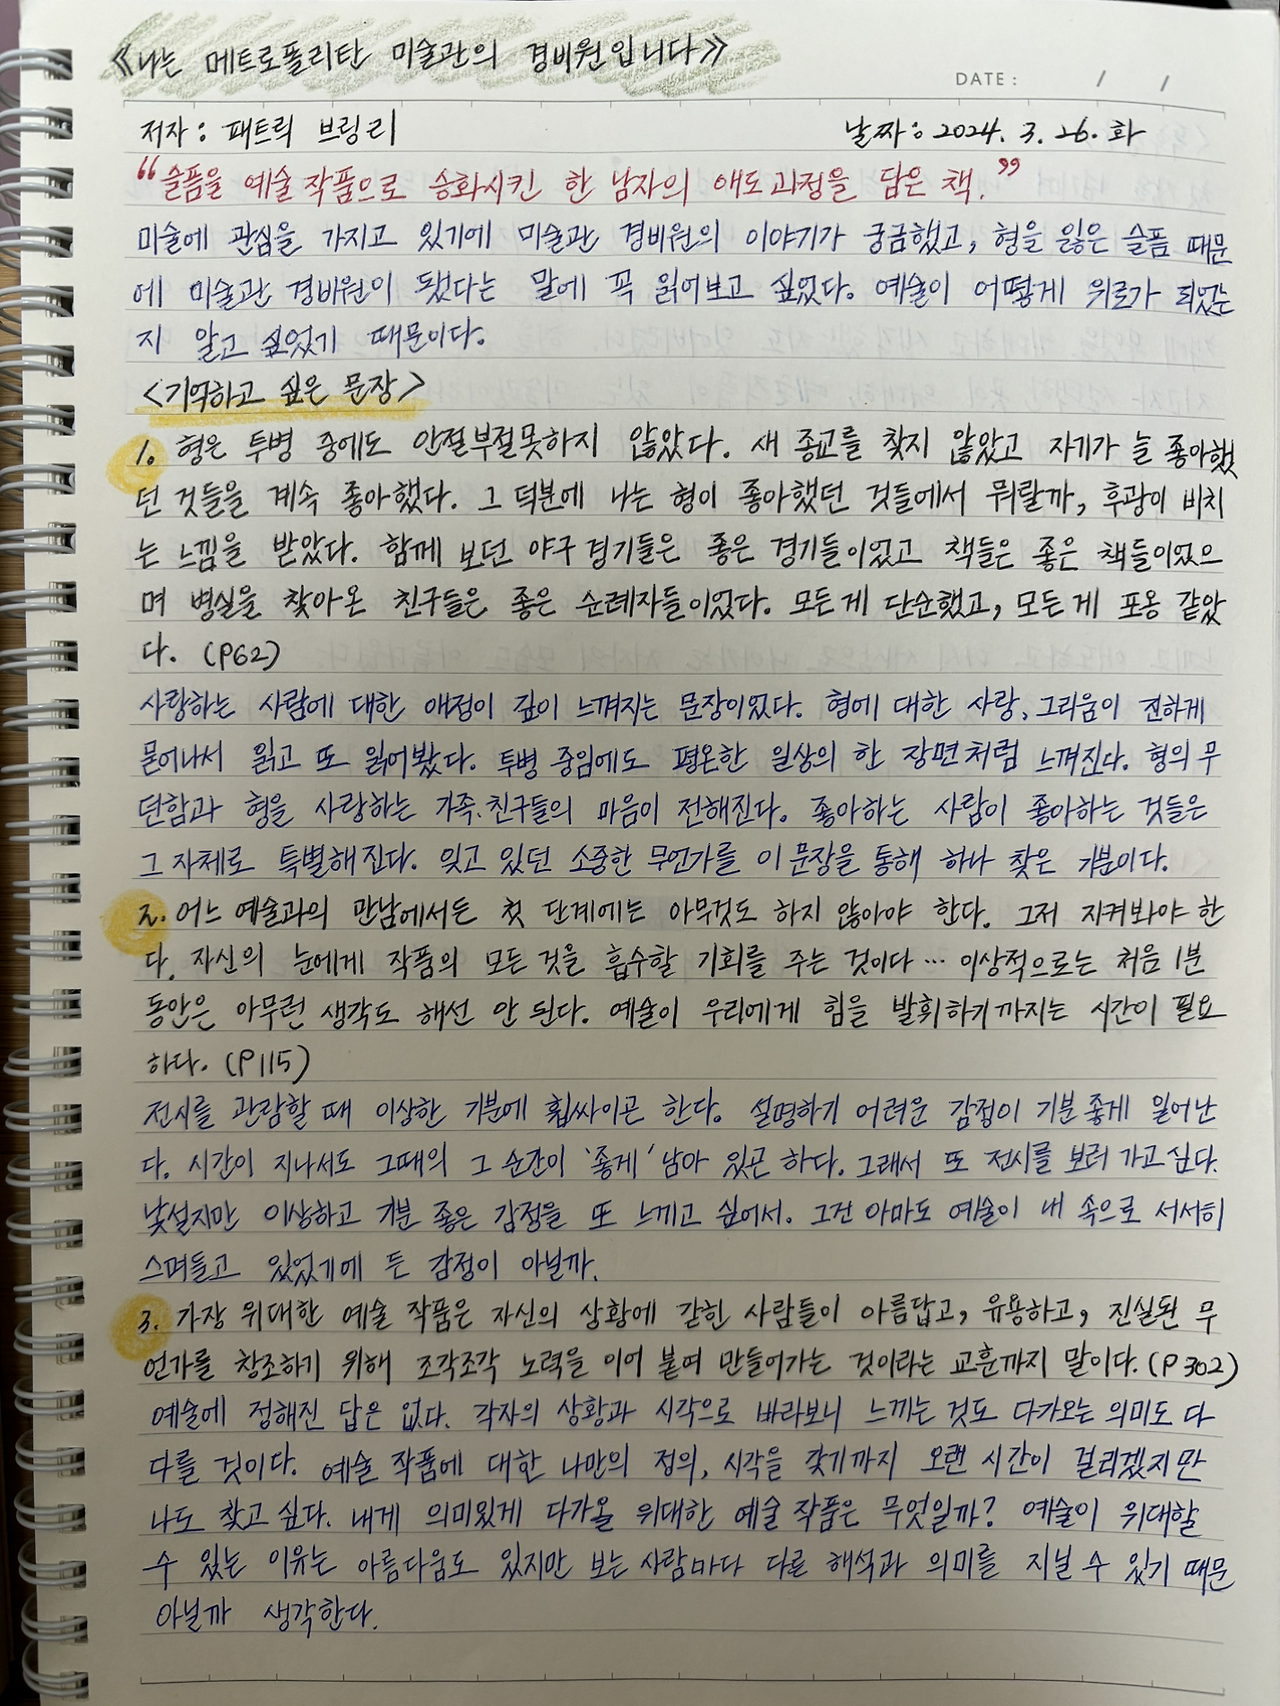 《나는 메트로폴리탄 미술관의 경비원입니다》
DATE : / /
저자 : 패트릭 브링리 날짜 : 2024. 3. 26. 화
“슬픔을 예술 작품으로 승화시킨 한 남자의 애도 과정을 담은 책.”
미술에 관심을 가지고 있기에 미술관 경비원의 이야기가 궁금했고, 형을 잃은 슬픔 때문
에 미술관 경비원이 됐다는 말에 꼭 읽어보고 싶었다. 예술이 어떻게 위로가 되었는
지 알고 싶었기 때문이다.
<기억하고 싶은 문장>
1. 형은 투병 중에도 안절부절못하지 않았다. 새 종교를 찾지 않았고 자기가 늘 좋아했
던 것들을 계속 좋아했다. 그 덕분에 나는 형이 좋아했던 것들에서 뭐랄까, 후광이 비치
는 느낌을 받았다. 함께 보던 야구 경기들은 좋은 경기들이었고 책들은 좋은 책들이었으
며 병실을 찾아온 친구들은 좋은 순례자들이었다. 모든게 단순했고, 모든게 포옹 같았
다. (P62)
사랑하는 사람에 대한 애정이 깊이 느껴지는 문장이었다. 형에 대한 사랑, 그리움이 진하게
묻어나서 읽고 또 읽어봤다. 투병 중임에도 평온한 일상의 한 장면처럼 느껴진다. 형의 무
던함과 형을 사랑하는 가족.친구들의 마음이 전해진다. 좋아하는 사람이 좋아하는 것들은
그 자체로 특별해진다. 잊고 있던 소중한 무언가를 이 문장을 통해 하나 찾은 기분이다.
2. 어느 예술과의 만남에서든 첫 단계에는 아무것도 하지 않아야 한다. 그저 지켜봐야 한
다. 자신의 눈에게 작품의 모든 것을 흡수할 기회를 주는 것이다… 이상적으로는 처음 1분
동안은 아무런 생각도 해선 안 된다. 예술이 우리에게 힘을 발휘하기까지는 시간이 필요
하다. (P115)
전시를 관람할 때 이상한 기분에 휩싸이곤 한다. 설명하기 어려운 감정이 기분 좋게 일어난
다. 시간이 지나서도 그때의 그 순간이 '좋게' 남아 있곤 하다. 그래서 또 전시를 보러 가고 싶다.
낯설지만 이상하고 기분 좋은 감정을 또 느끼고 싶어서. 그건 아마도 예술이 내 속으로 서서히
스며들고 있었기에 든 감정이 아닐까.
3. 가장 위대한 예술 작품은 자신의 상황에 갇힌 사람들이 아름답고, 유용하고, 진실된 무
언가를 창조하기 위해 조각조각 노력을 이어 붙여 만들어가는 것이라는 교훈까지 말이다. (P302)
예술에 정해진 답은 없다. 각자의 상황과 시각으로 바라보니 느끼는 것도 다가오는 의미도 다
다를 것이다. 예술 작품에 대한 나만의 정의, 시각을 갖기까지 오랜 시간이 걸리겠지만
나도 찾고 싶다. 내게 의미있게 다가올 위대한 예술 작품은 무엇일까? 예술이 위대할
수 있는 이유는 아름다움도 있지만 보는 사람마다 다른 해석과 의미를 지닐 수 있기 때문
아닐까 생각한다.